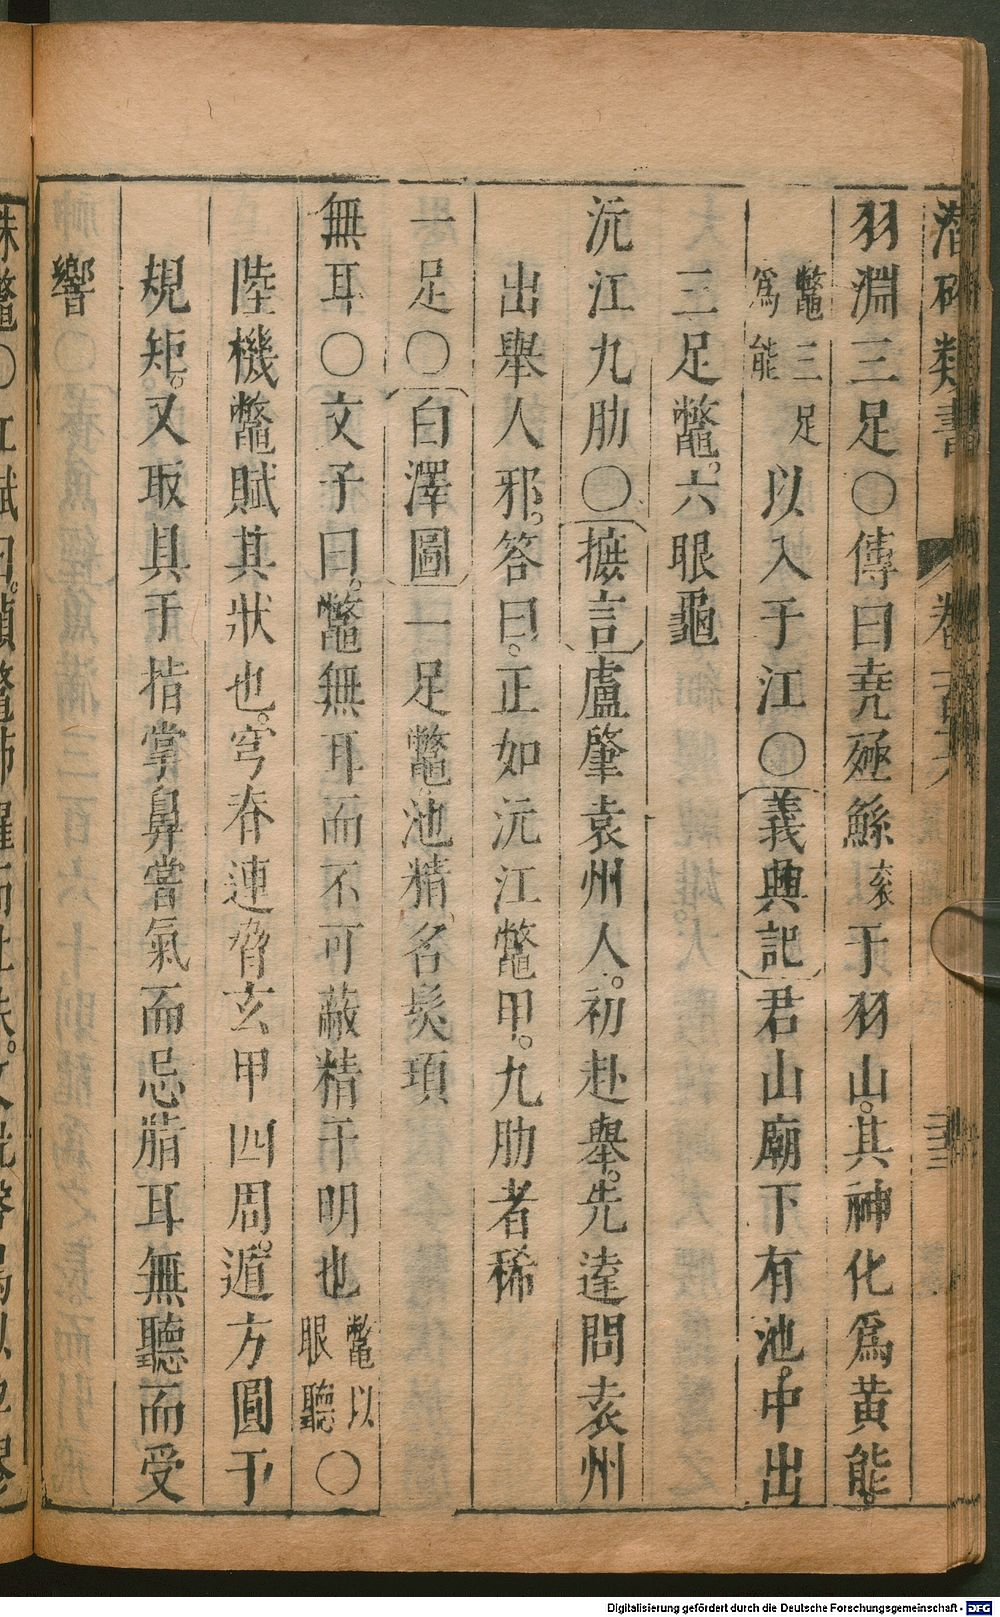 潛確類書 卷一百六
羽淵三足〇傳曰堯殛鯀亥于羽山其神化爲黃能
鼈三足爲能以入于江〇義興記君山廟下有池中出
三足鼈六眼龜
沅江九肋〇摭言盧肇袁州人初赴舉先達問袁州
出舉人邪答曰正如沅江鼈甲九肋者稀
一足〇白澤圖一足鼈池精名髸項
無耳〇文子曰鼈無耳而不可蔽精于明也鼈以眼聽〇
陸機鼈賦其狀也穹脊連脅玄甲四周遁方圓于
規矩又取具于指掌鼻嘗氣而忌脂耳無聽而受
響
Digitalisierung gefördert durch die Deutsche Forschungsgemeinschaft - DFG